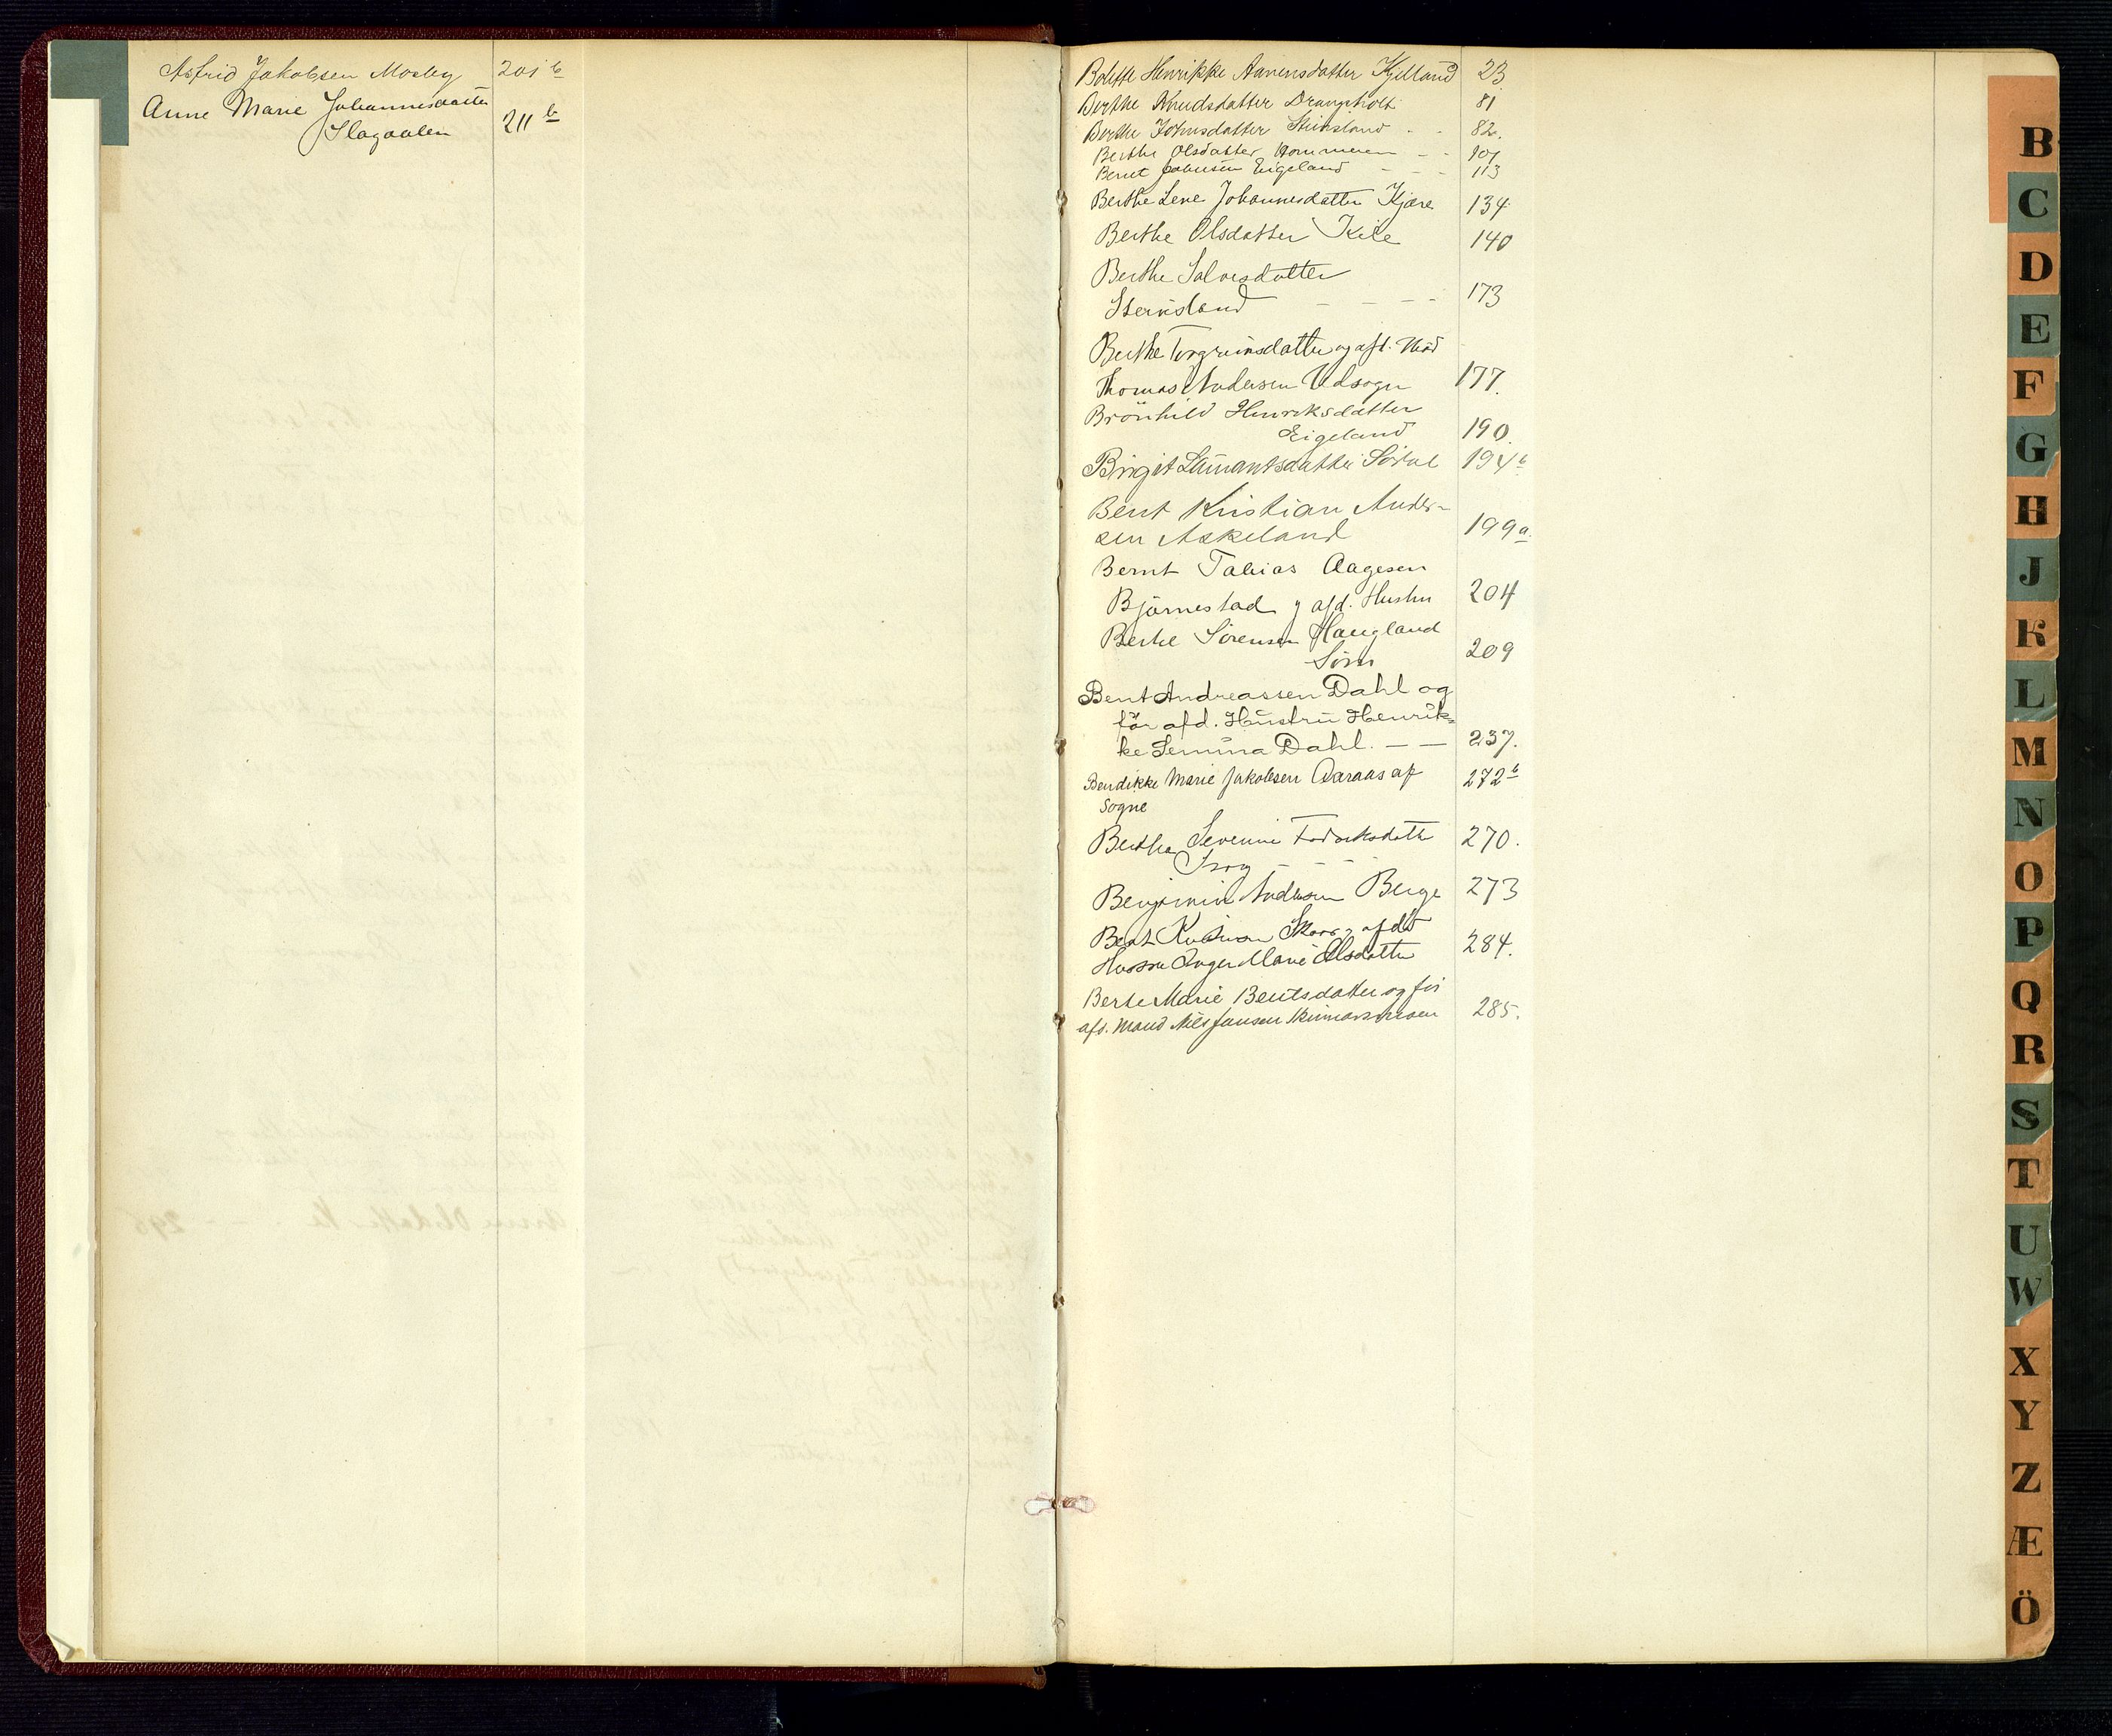 Asfrid Jakobsen Mosby 201 b
Anne Marie Johannesdatter
Slagaalen 211 b
Bolette Henrikke Aanensdatter Kjelland 23
Berthe Knudsdatter Drangsholt 81
Berthe Johnsdatter Stikland - - 82.
Berthe Olsdatter Hommeren - - 101
Bernt Jakobsen Eigeland - - - 113
Berthe Lene Johannesdatter Kjære 134
Berthe Olsdatter Kile 140
Berthe Salvesdatter
Sterkland - - - - 173
Berthe Torgrimsdatter og afd. Mød
Thomas Andersen Udsogn 177.
Brönhild Henriksdatter
Eigeland 190.
Birgit 194 b
Bent Kristian Ander-
sen Askeland 199 a.
Bernt Tobias Aagesen
Bjørnestad og afd. Hustru 204
Berthe Sörensen Haugland
209
Bent Andreassen Dahl og
før afd. Hustru Henrik=
ke Semina Dahl. - - 237.
Bendikke Marie Jakobsen Aaraas af 272 b
Sogne
Berthe Severine Fredriksdatter 270.
- - -
Benjamin Andersen Berge 273
Bent Kristian Skaar og afdø
Hustru Inger Marie Olsdatter 284.
Berte Marie Bentsdatter og før
afd. Mand Nils Jensen 285.
B
C
D
E
F
G
H
J
K
L
M
N
O
P
Q
R
S
T
U
W
X
Y
Z
Æ
Ö